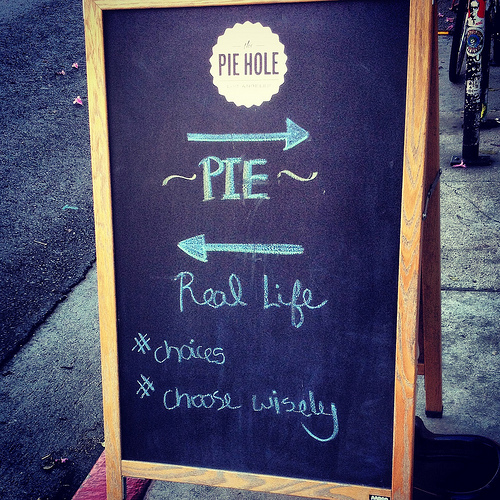 the
PIE HOLE
PIE
Real Life
#choices
#choose wisely